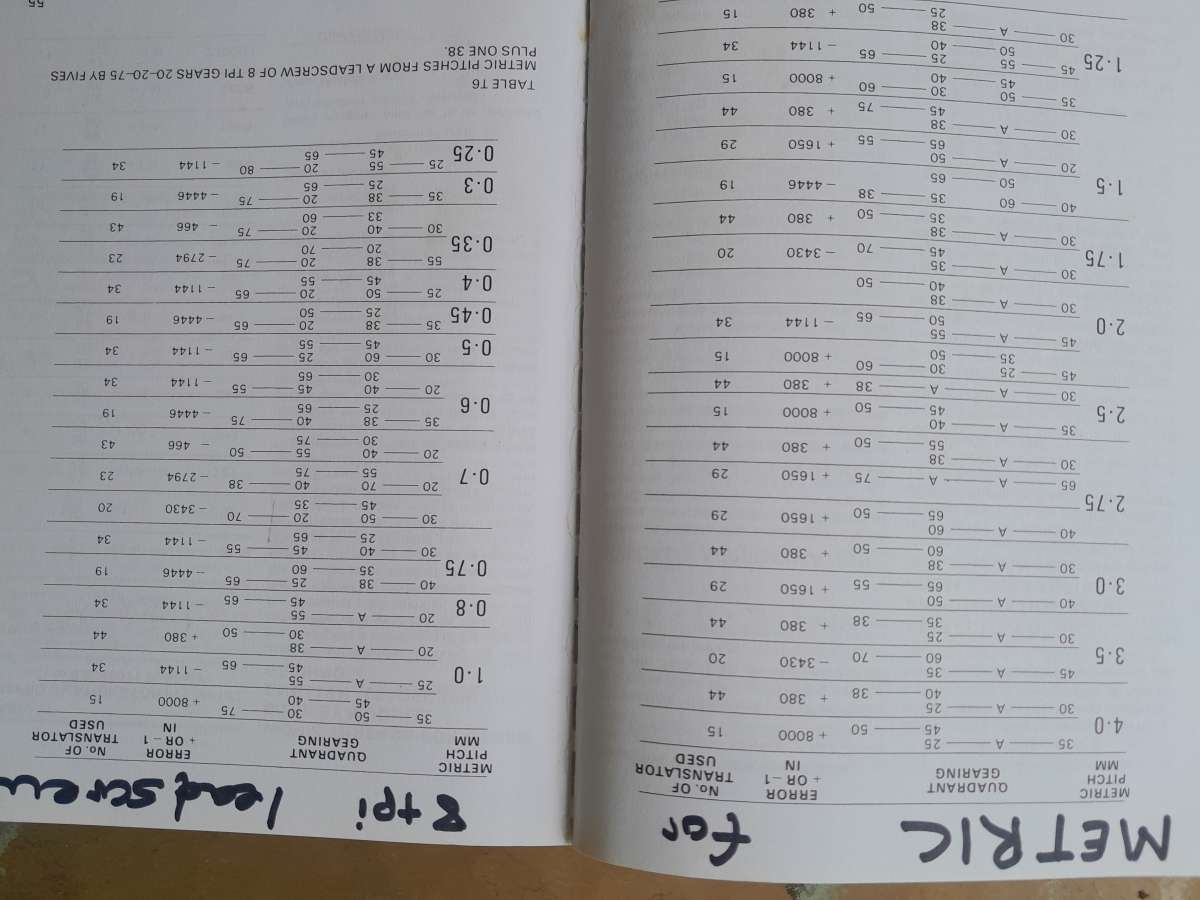 METRIC for
METRIC QUADRANT ERROR No. OF
PITCH GEARING + OR –1 TRANSLATOR
MM IN USED
4·0 35 — A — 25
45 — 50 + 8000 15
30 — A — 25
40 — 38 + 380 44
3·5 45 — A — 35
60 — 70 – 3430 20
30 — A — 25
35 — 38 + 380 44
3·0 40 — A — 50
65 — 55 + 1650 29
30 — A — 38
60 — 50 + 380 44
2·75 40 — A — 60
65 — 50 + 1650 29
65 — A — A — 75 + 1650 29
30 — A — 38
55 — 50 + 380 44
2·5 35 — A — 40
45 — 50 + 8000 15
30 — A — A — 38 + 380 44
2·0 45 — 25 30 — 60
35 — 50 + 8000 15
45 — A — 55
50 — 65 – 1144 34
30 — A — 38
— 50
1·75 30 — A — 35
45 — 70 – 3430 20
30 — A — 38
35 — 50 + 380 44
1·5 40 — 60 35 — 38
50 — 65 – 4446 19
20 — A — 50
65 — 55 + 1650 29
30 — A — 38
45 — 75 + 380 44
1·25 35 — 50 30 — 60
45 — 40 + 8000 15
45 — 55 25 — 65
50 — 40 – 1144 34
30 — A — 38
25 — 50 + 380 15
8 tpi leadscrew
METRIC QUADRANT ERROR No. OF
PITCH GEARING + OR –1 TRANSLATOR
MM IN USED
1·0 35 — 50 30 — 75
45 — 40 + 8000 15
25 — A — 55
45 — 65 – 1144 34
20 — A — 38
30 — 50 + 380 44
0·8 20 — A — 55
45 — 65 – 1144 34
0·75 40 — 38 25 — 65
35 — 60 – 4446 19
30 — 40 45 — 55
25 — 65 – 1144 34
0·7 30 — 50 20 — 70
45 — 35 – 3430 20
20 — 70 40 — 38
55 — 75 – 2794 23
20 — 40 55 — 50
30 — 75 – 466 43
0·6 35 — 38 40 — 75
25 — 65 – 4446 19
20 — 40 45 — 55
30 — 65 – 1144 34
0·5 30 — 60 25 — 65
45 — 55 – 1144 34
0·45 35 — 38 20 — 65
25 — 50 – 4446 19
0·4 25 — 50 20 — 65
45 — 55 – 1144 34
0·35 55 — 38 20 — 75
20 — 70 – 2794 23
30 — 40 20 — 75
33 — 60 – 466 43
0·3 35 — 38 20 — 75
25 — 65 – 4446 19
0·25 25 — 55 20 — 80
45 — 65 – 1144 34
TABLE T6
METRIC PITCHES FROM A LEADSCREW OF 8 TPI GEARS 20–20–75 BY FIVES
PLUS ONE 38.
55